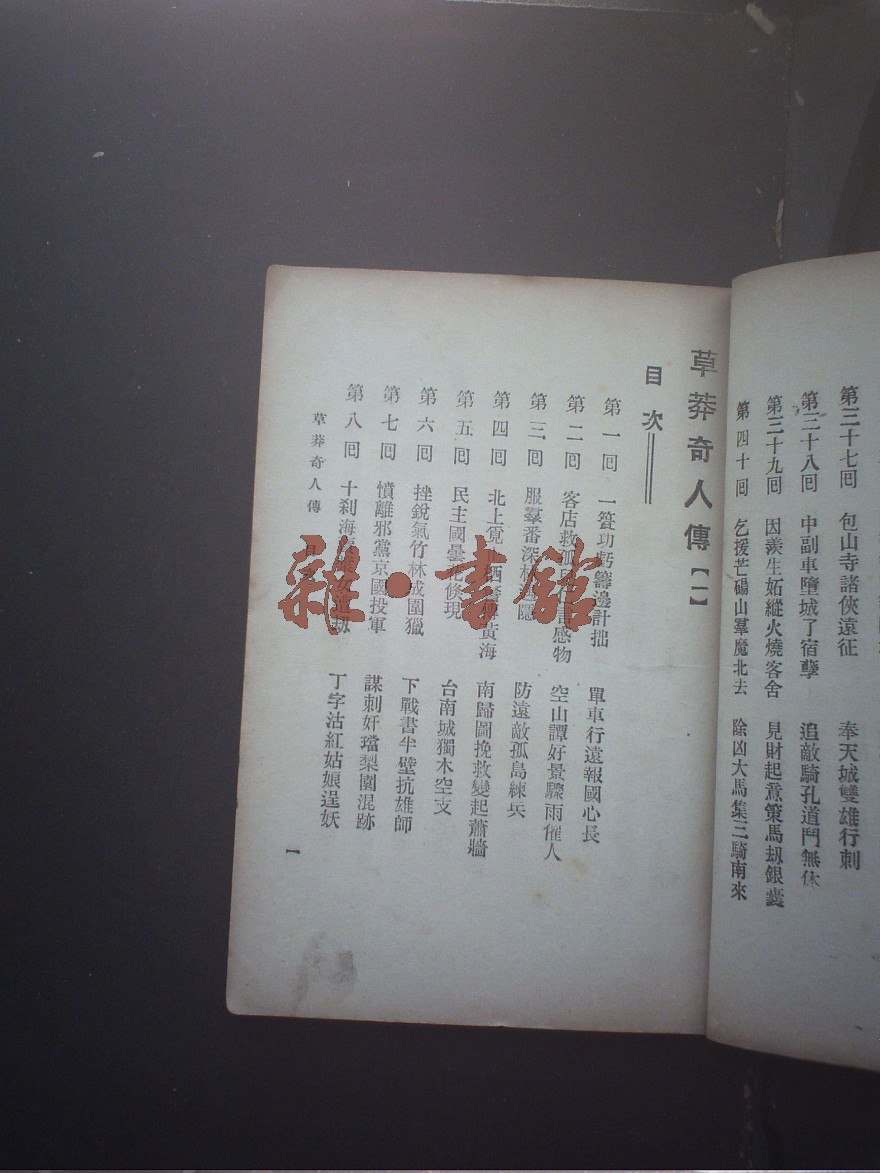 第三十七囘 包山寺諸俠遠征 奉天城雙雄行刺
第三十八囘 中副車墮城了宿孽 追敵騎孔道鬥無休
第三十九囘 因羨生妬縱火燒客舍 見財起意策馬刼銀囊
第四十囘 乞援芒碭山羣魔北去 除凶大馬集三騎南來
草莽奇人傳【一】
目次
第一囘 一簣功虧籌邊計拙 單車行遠報國心長
第二囘 客店救孤 言感物 空山譚好景驟雨催人
第三囘 服羣番深 隱 防遠敵孤島練兵
第四囘 北上 黃海 南歸圖挽救變起蕭牆
第五囘 民主國曇花倐現 台南城獨木空支
第六囘 挫銳氣竹林成圍獵 下戰書半壁抗雄師
第七囘 憤離邪黨京國投軍 謀刺奸璫梨園混跡
第八囘 十刹海 刼 丁字沽紅姑娘逞妖
草莽奇人傳 目
一
雜·書館